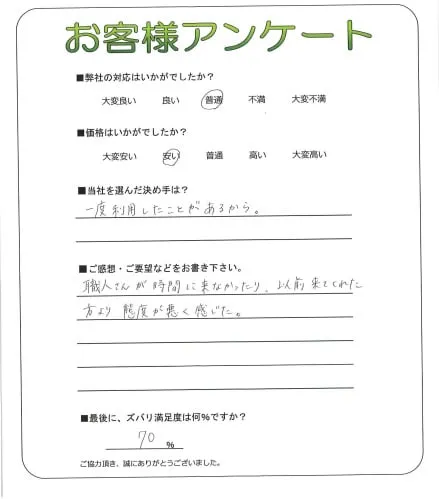 お客様アンケート
■弊社の対応はいかがでしたか？
大変良い 良い 普通 不満 大変不満
■価格はいかがでしたか？
大変安い 安い 普通 高い 大変高い
■当社を選んだ決め手は？
一度利用したことがあるから。
■ご感想・ご要望などをお書き下さい。
職人さんが時間に来なかったり、以前来てくれた
方より態度が悪く感じた。
■最後に、ズバリ満足度は何％ですか？
70 ％
ご協力頂き、誠にありがとうございました。